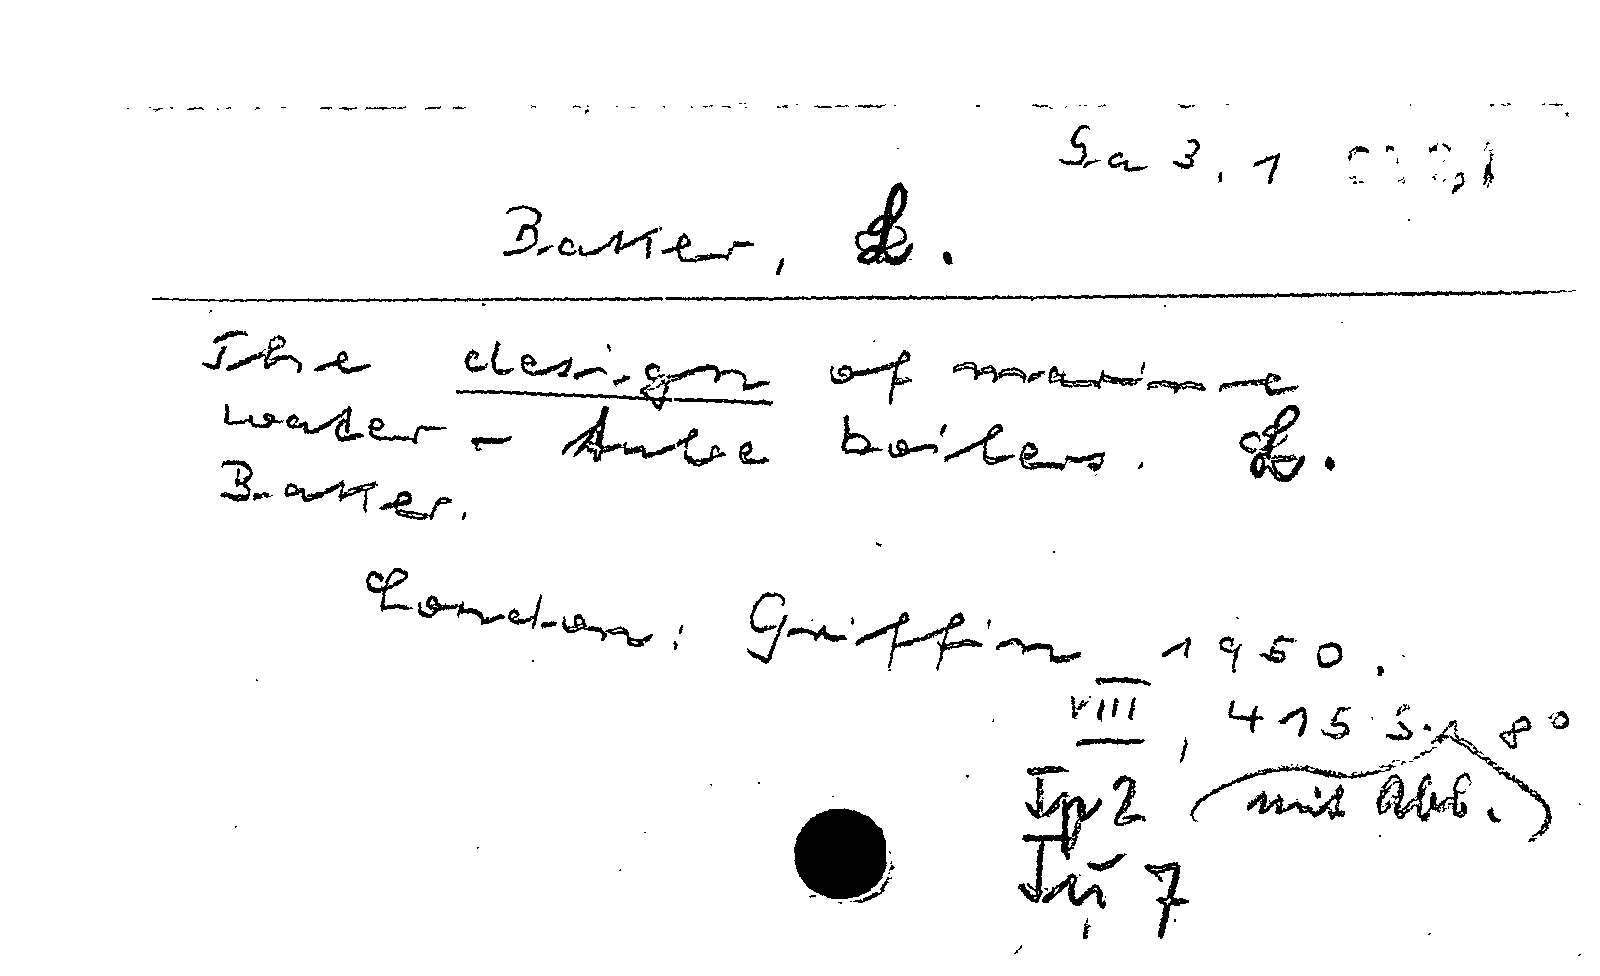 Ga 3, 1
Baker, L.
The design of marine
water-tube boilers. L.
Baker.
London: Griffin 1950.
VIII, 415 S. 8°
Ip 2 mit Abb.
7